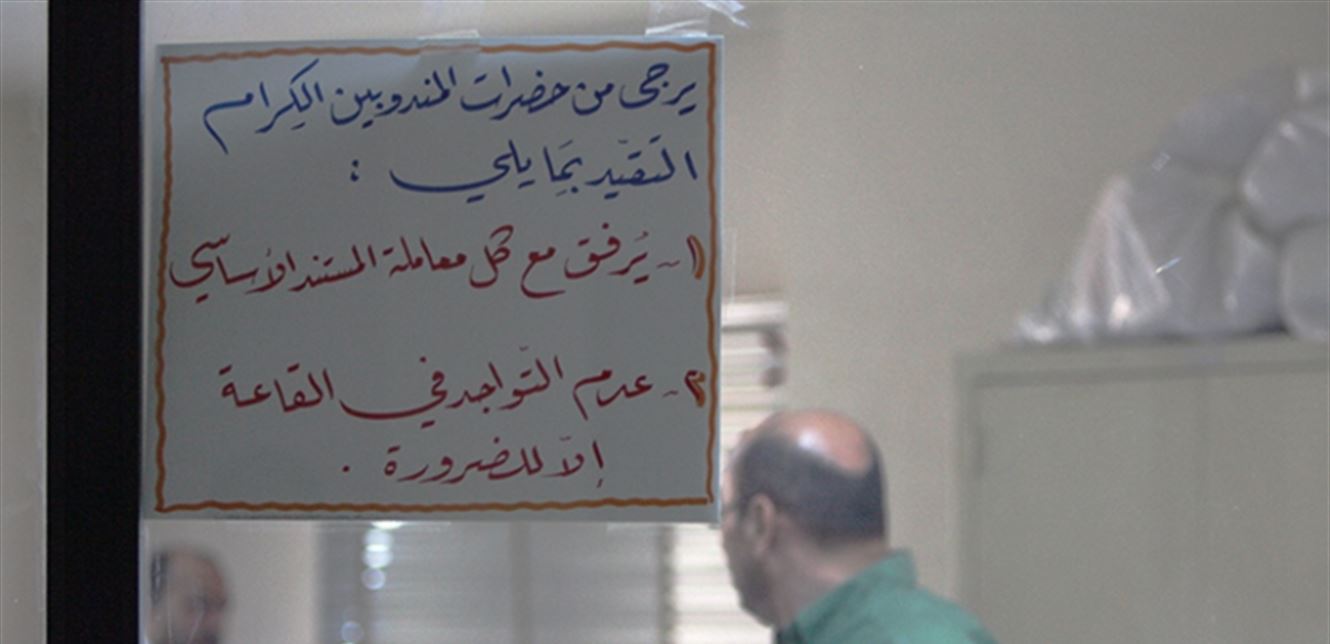 يرجى من حضرات المندوبين الكِرام
التَقيّد بمَِا يلي :
١- يُرفق مع كل معاملة المستند الأساسّي
٢- عدم التّواجد في القاعة
إلاّ للضرورة .